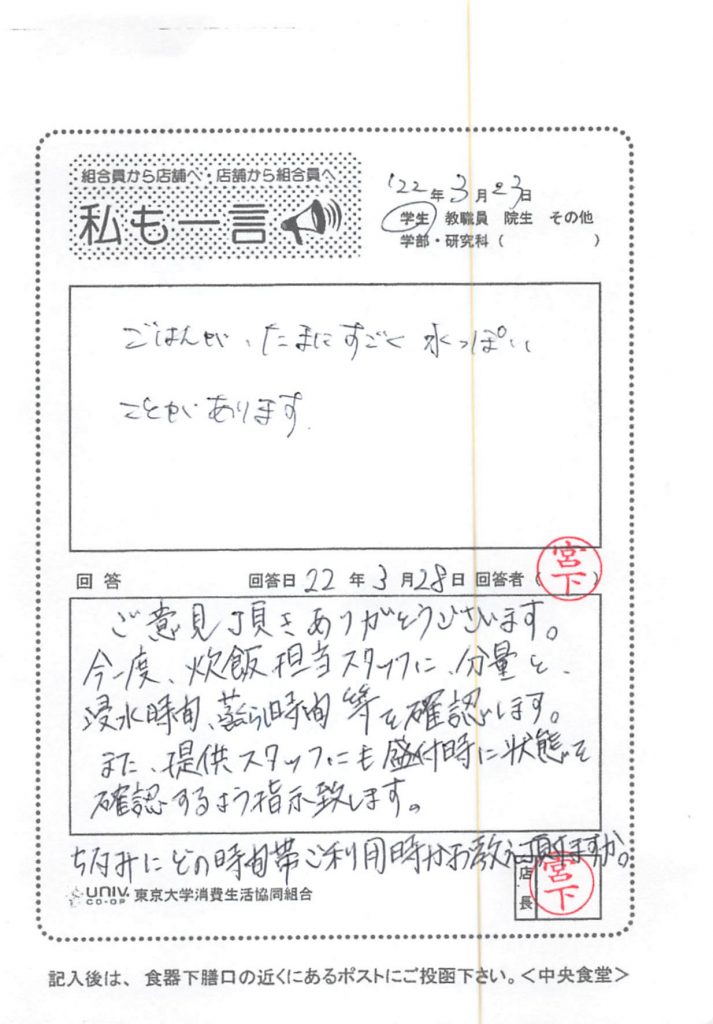 組合員から店舗へ・店舗から組合員へ
私も一言
'22年3月23日
学生 教職員 院生 その他
学部・研究科( )
ごはんが、たまにすごく水っぽい
ことがあります。
回答 回答日22年3月28日 回答者(宮下)
ご意見頂きありがとうございます。
今一度、炊飯担当スタッフに、分量と、
浸水時間、蒸らし時間等を確認します。
また、提供スタッフにも盛付時に状態を
確認するよう指示致します。
ち付みにどの時間帯ご利用時かお教え頂けますか。
UNIV. CO-OP 東京大学消費生活協同組合
店長 宮下
記入後は、食器下膳口の近くにあるポストにご投函下さい。<中央食堂>